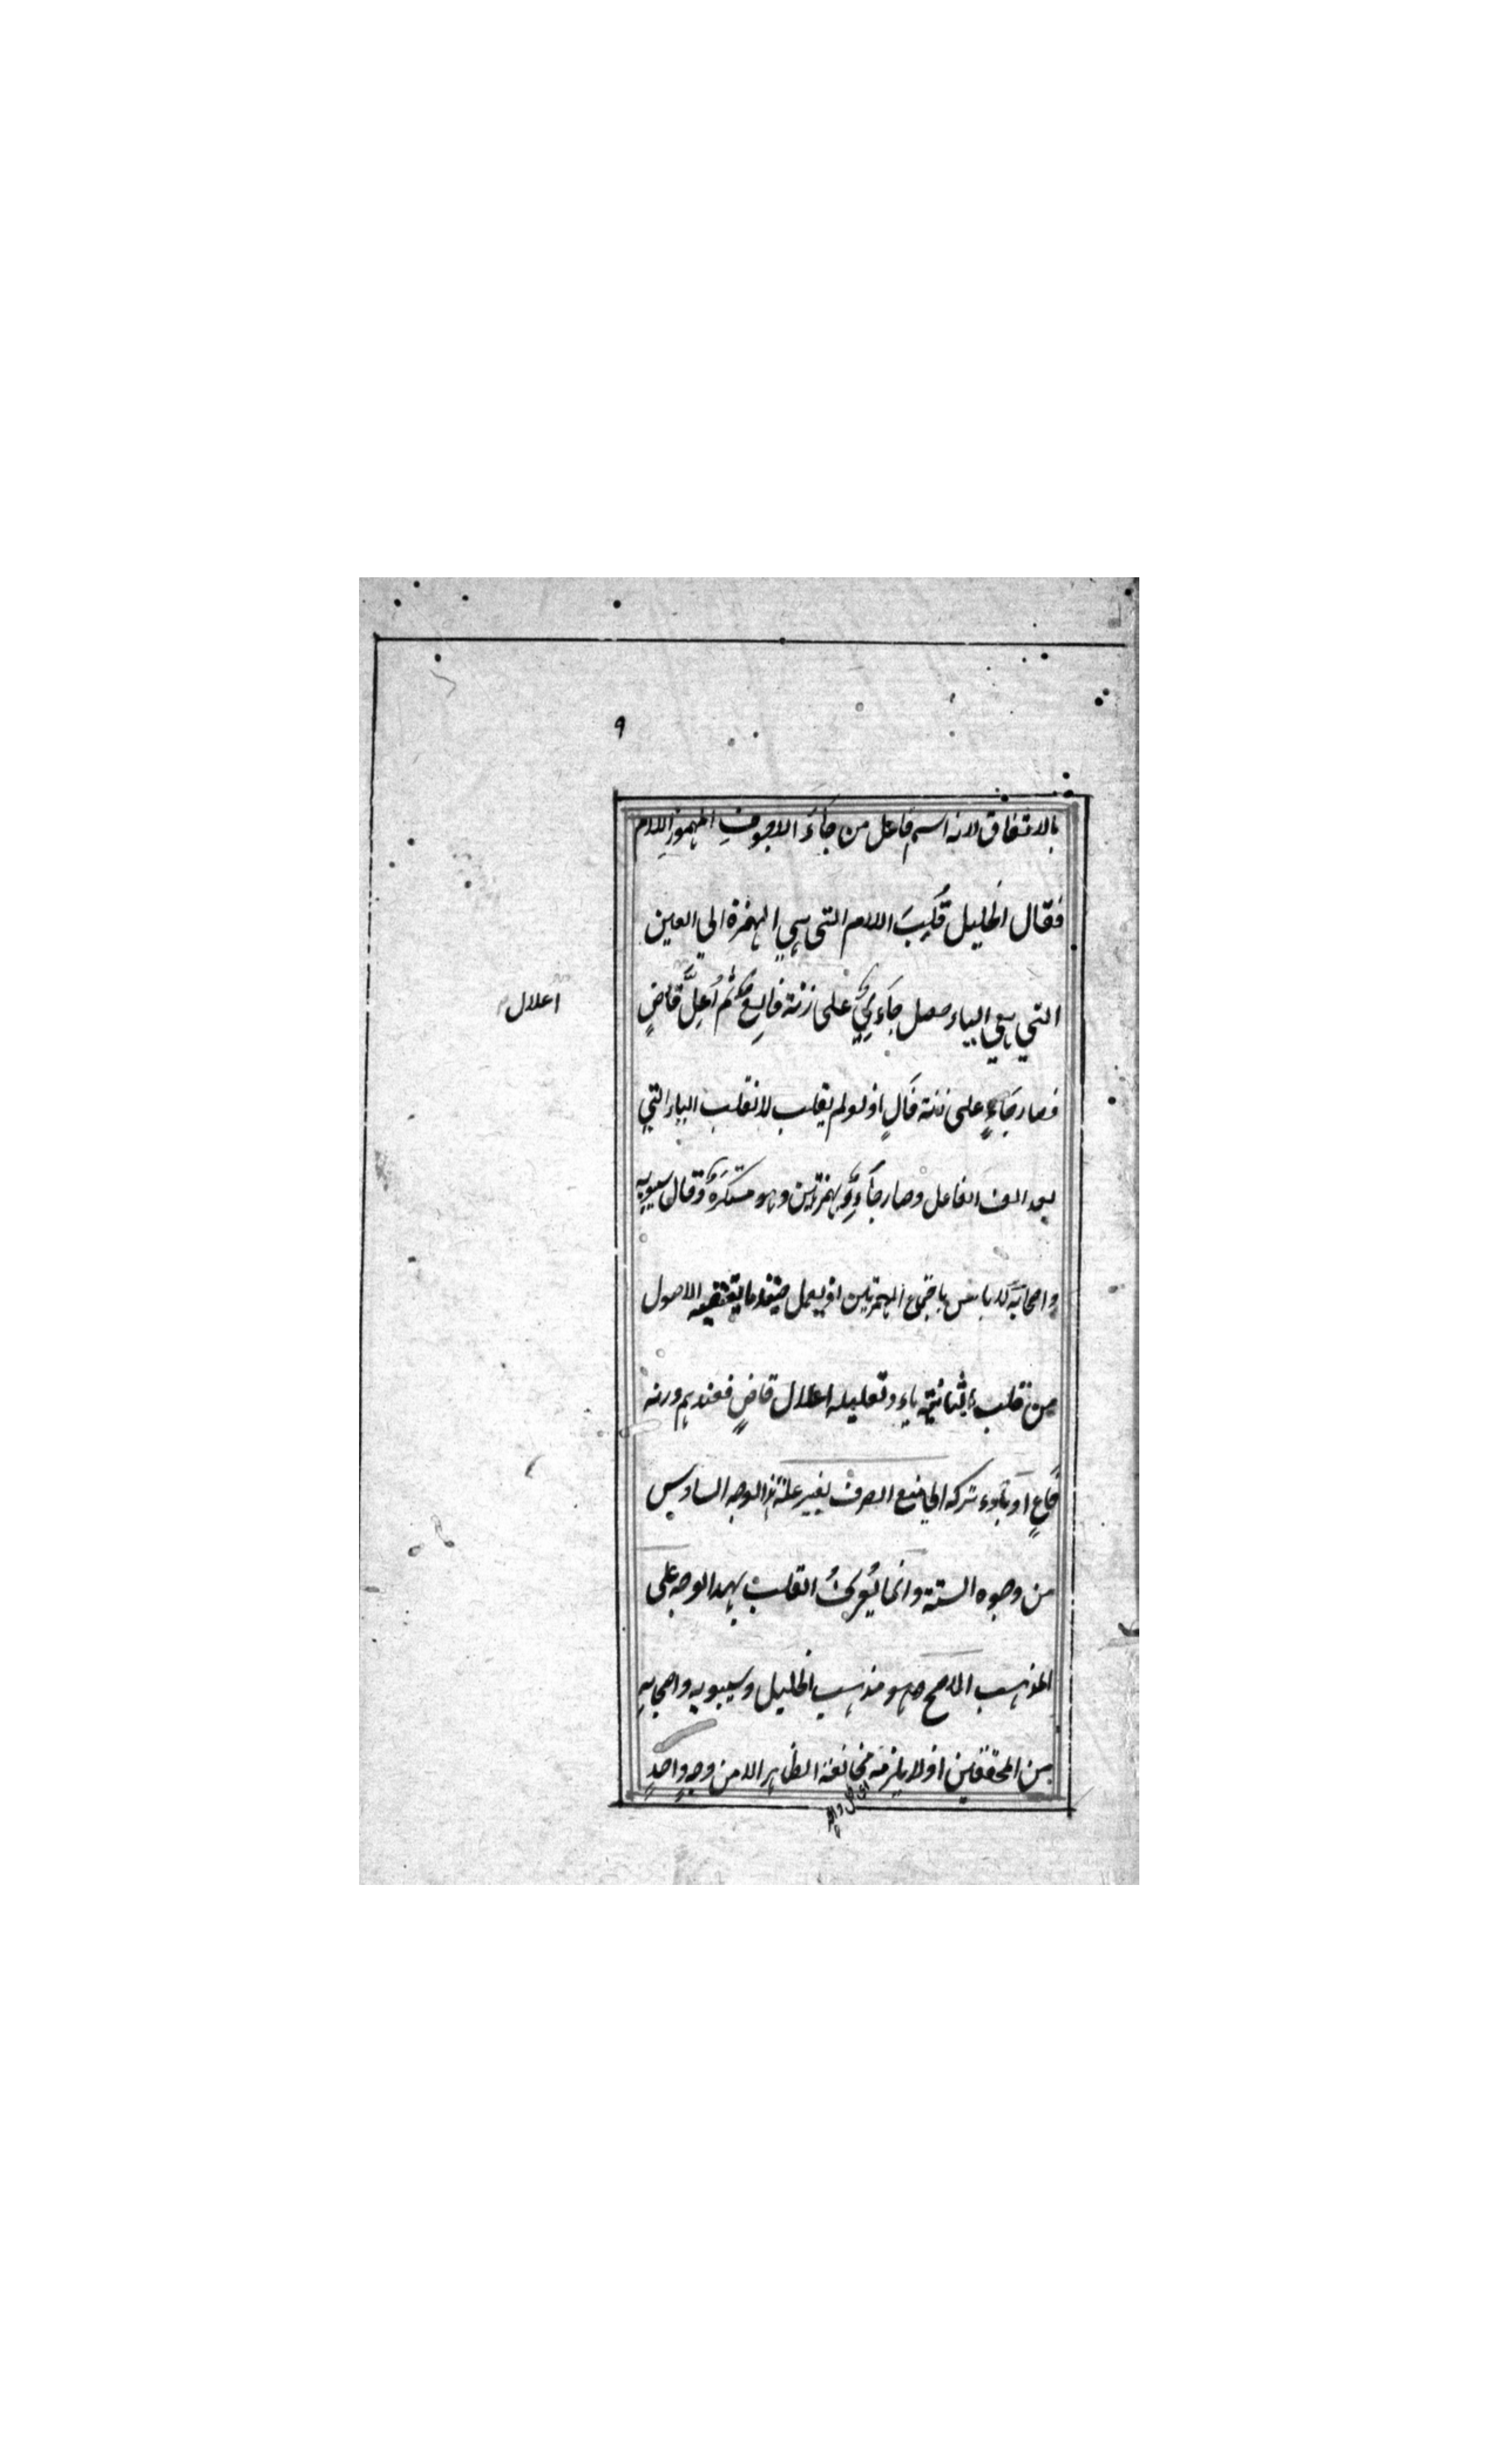 ٩
بالاتفاق لانه اسم فاعل من جَاءَ الاجوفِ المهموز اللام
فقال الخليل قُلِبَ اللام التى هى الهمزة الي العين
التي هي الياء فصار جَاءِيٌ على زنة فالِعٌ ثم اُعِلَّ قاضٍ
اعلال
فصار جَاءٍ على زنة فَالٍ اذ لو لم يقلب لانقلب الياء التي
بعد الف الفاعل وصار جَاءِءٌ بهمزتين وهو مستكرَهٌ وقال سيبويه
واصحابَه لا باس باجتماع الهمزتين اذ يعمل حينئذ ما يقتضيه الاصول
من قلب الثانية ياء وتعليله اعلال قاضٍ فعندهم وزنه
فَاعٍ اَو باَداء تركه الي منع الصرف بغير علة هذا الوجه السادس
من وجوه الستة وانما يُعرفُ القلب بهذا الوجه على
المذهب الاصح هو مذهب الخليل وسيبويه واصحابهِ
من المحققين اذ لا يلزمه مخالفة الظاهر الا من وجهٍ واحدٍ